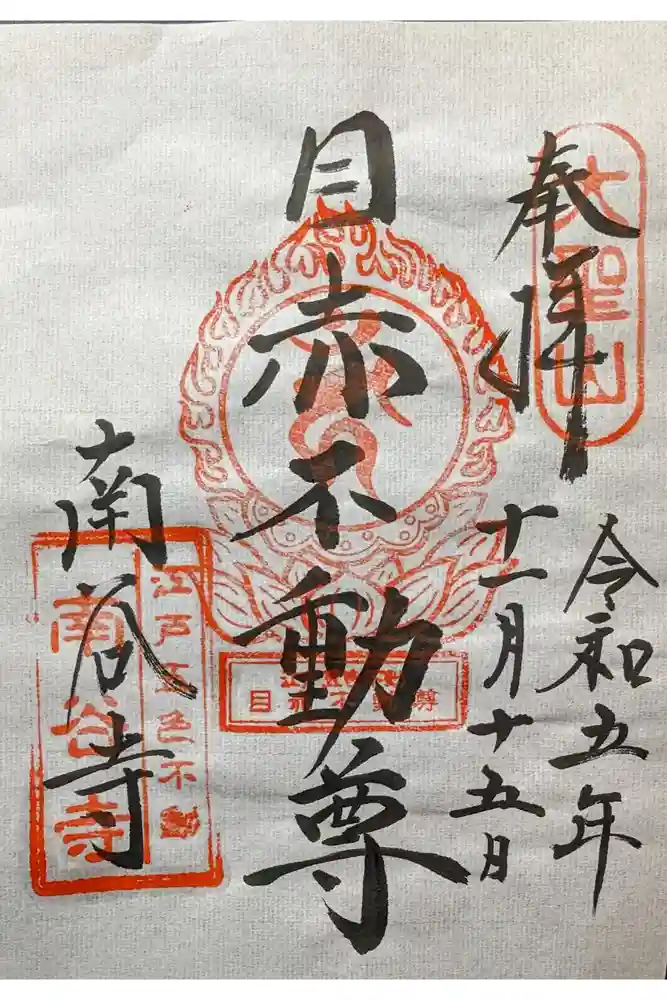 奉拝
大聖山
令和五年
十一月十五日
目赤不動尊
南谷寺
江戸五色不動
南谷寺